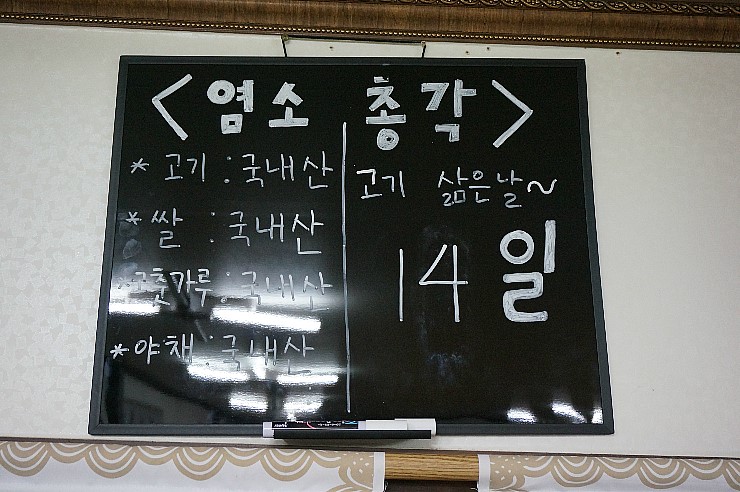 <염소 총각>
* 고기 : 국내산
* 쌀 : 국내산
고춧가루 : 국내산
* 야채 : 국내산
고기 삶은날~
14일